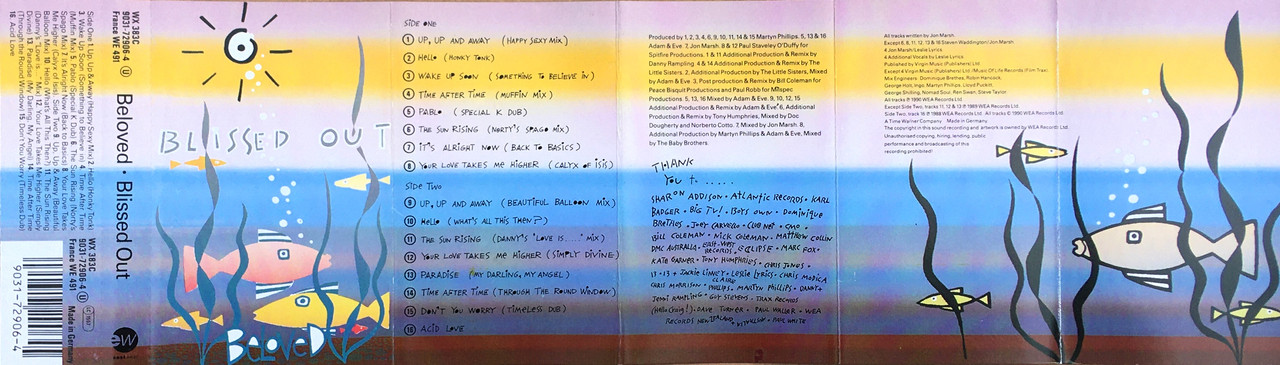 Side One 1. Up, Up & Away (Happy Sexy Mix) 2. Hello (Honky Tonk)
3. Wake Up Soon (Something to Believe in) 4. Time After Time
(Muffin Mix) 5. Pablo (Special K Dub) 6. The Sun Rising (Norty's
Spago Mix) 7. It's Alright Now (Back to Basics) 8. Your Love Takes
Me Higher (Calyx of Isis). Side Two 9. Up, Up & Away (Beautiful
Balloon Mix) 10. Hello (What's All This Then?) 11. The Sun Rising
(Danny's "Love is.... Mix) 12. Your Love Takes Me Higher (Simply
Divine) 13. Paradise (My Darling, My Angel) 14. Time After Time
(Through the Round Window) 15. Don't You Worry (Timeless Dub)
16. Acid Love
9031-72906-4
WX 383C
9031-72906-4 U
France WE 491
Beloved • Blissed Out
WX 383C
9031-72906-4 U
France WE 491
Made in Germany
BLISSED OUT
BELOVED
SIDE ONE
1 UP, UP AND AWAY (HAPPY SEXY MIX)
2 HELLO (HONKY TONK)
3 WAKE UP SOON (SOMETHING TO BELIEVE IN)
4 TIME AFTER TIME (MUFFIN MIX)
5 PABLO (SPECIAL K DUB)
6 THE SUN RISING (NORTY'S SPAGO MIX)
7 IT'S ALRIGHT NOW (BACK TO BASICS)
8 YOUR LOVE TAKES ME HIGHER (CALYX OF ISIS)
SIDE TWO
9 UP, UP AND AWAY (BEAUTIFUL BALLOON MIX)
10 HELLO (WHAT'S ALL THIS THEN?)
11 THE SUN RISING (DANNY'S 'LOVE IS.....' MIX)
12 YOUR LOVE TAKES ME HIGHER (SIMPLY DIVINE)
13 PARADISE (MY DARLING, MY ANGEL)
14 TIME AFTER TIME (THROUGH THE ROUND WINDOW)
15 DON'T YOU WORRY (TIMELESS DUB)
16 ACID LOVE
Produced by 1, 2, 3, 4, 6, 9, 10, 11, 14 & 15 Martyn Phillips. 5, 13 & 16
Adam & Eve. 7, Jon Marsh. 8 & 12 Paul Staveley O'Duffy for
Spitfire Productions. 1 & 11 Additional Production & Remix by
Danny Rampling. 4 & 14 Additional Production & Remix by The
Little Sisters. 2, Additional Production by The Little Sisters, Mixed
by Adam & Eve. 3, Post production & Remix by Bill Coleman for
Peace Bisquit Productions and Paul Robb for Mispec
Productions. 5, 13, 16 Mixed by Adam & Eve. 9, 10, 12, 15
Additional Production & Remix by Adam & Eve. 6, Additional
Production & Remix by Tony Humphries, Mixed by Doc
Dougherty and Norberto Cotto. 7, Mixed by Jon Marsh. 8,
Additional Production by Martyn Phillips & Adam & Eve, Mixed
by The Baby Brothers
THANK
YOU to ......
SHARON ADDISON • ATLANTIC RECORDS • KARL
BADGER • BIG TV! • BOYS OWN • DOMINIQUE
BRETHES • JOEY CARVELLO • CLUB NET • CMO •
BILL COLEMAN • NICK COLEMAN • MATTHEW COLLIN
DMC AUSTRALIA • EAST-WEST RECORDS • ECLIPSE • MARC FOX •
KATE GARNER • TONY HUMPHRIES • CHRIS JONES •
JACKIE LINNEY • LESLIE LYRICS • CHRIS MODICA
CHRIS MORRISON • PHILIPS • MARTYN PHILLIPS • DANNY +
JENNI RAMPLING • GUY STEVENS • TRAX RECORDS
(Hello Craig!) • DAVE TURNER • PAUL WALLER • WEA
RECORDS NEW ZEALAND • PAUL WHITE
All tracks written by Jon Marsh.
Except 6, 8, 11, 12, 13 & 16 Steven Waddington/Jon Marsh.
4 Jon Marsh/Leslie Lyrics.
4 Additional Vocals by Leslie Lyrics
Published by Virgin Music (Publishers) Ltd.
Except 4 Virgin Music (Publishers) Ltd./Music Of Life Records (Film Trax)
Mix Engineers: Dominique Brethes, Robin Hancock,
George Holt, Ingo, Martyn Phillips, Lloyd Puckitt,
George Shilling, Nomad Soul, Ren Swan, Steve Taylor.
All tracks ℗ 1990 WEA Records Ltd.
Except Side Two, tracks 11, 12 & 13 ℗ 1989 WEA Records Ltd.
Side Two, track 16 ℗ 1988 WEA Records Ltd. All tracks © 1990 WEA Records Ltd.
A Time Warner Company Made in Germany
The copyright in this sound recording and artwork is owned by WEA Records Ltd.
Unauthorised copying, hiring, lending, public
performance and broadcasting of this
recording prohibited!